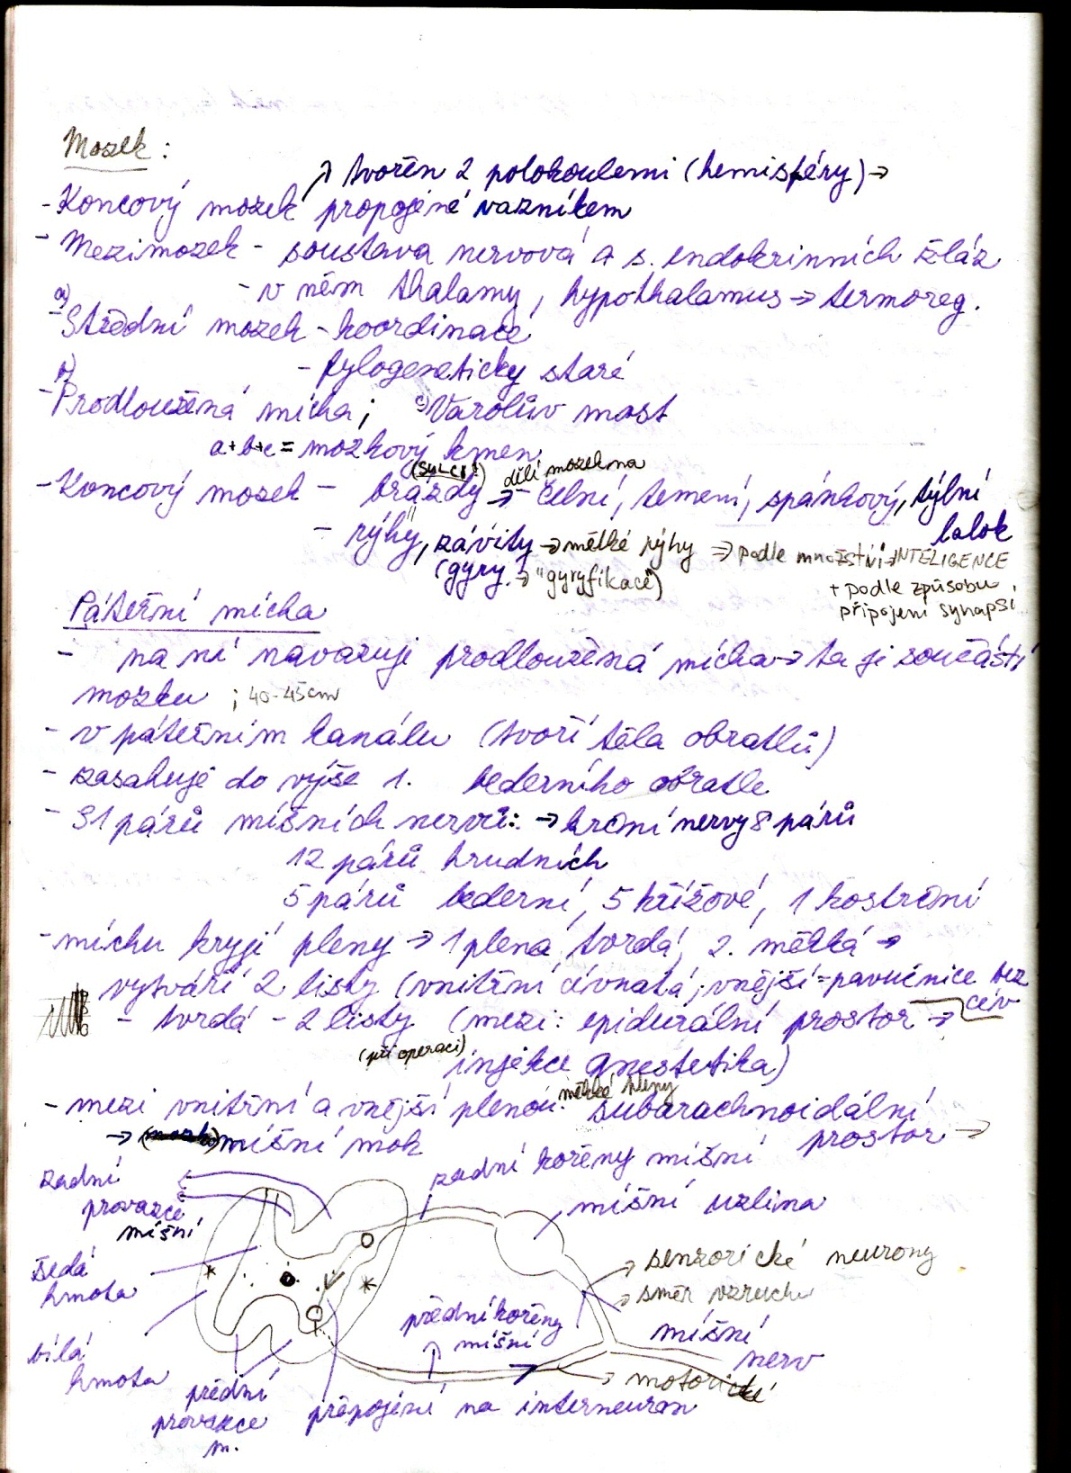 Mozek:
↗ tvořen 2 polokoulemi (hemisféry) →
- Koncový mozek propojené vazníkem
- Mezimozek - soustava nervová a s. endokrinních žláz
- v něm thalamy, hypothalamus → termoreg.
a)
- Střední mozek - koordinace
- fylogeneticky staré
b)
- Prodloužená mícha; c) Varolův most
a+b+c = mozkový kmen
(SULCI) dělí mozek na
- Koncový mozek - brázdy → - čelní, temení, spánkový, týlní
lalok
- rýhy, závity → mělké rýhy ⇒ podle množství: INTELIGENCE
(gyry → "gyryfikace") + podle způsobu
připojení synapsí
Páteřní mícha
- na ní navazuje prodloužená mícha → ta je součástí
mozku ; 40-45cm
- v páteřním kanálu (tvoří těla obratlů)
- zasahuje do výše 1. bederního obratle
- 31 párů míšních nervů: → krční nervy 8 párů
12 párů hrudních
5 párů bederní, 5 křížové, 1 kostrční
- míchu kryjí pleny → 1 plena tvrdá, 2. měkká →
vytváří 2 listy (vnitřní cévnatá; vnější = pavučnice bez
cév
- tvrdá - 2 listy (mezi: epidurální prostor →
(při operaci) injekce anestetika)
měkké pleny
- mezi vnitřní a vnější plenou: subarachnoidální
prostor →
→ míšní mok
zadní kořeny míšní
zadní
provazce
míšní
míšní uzlina
šedá
hmota
senzorické neurony
směr vzruchu
přední kořeny
míšní
míšní
nerv
bílá
hmota
motorické
přední
provazce
m.
přepojení na interneuron